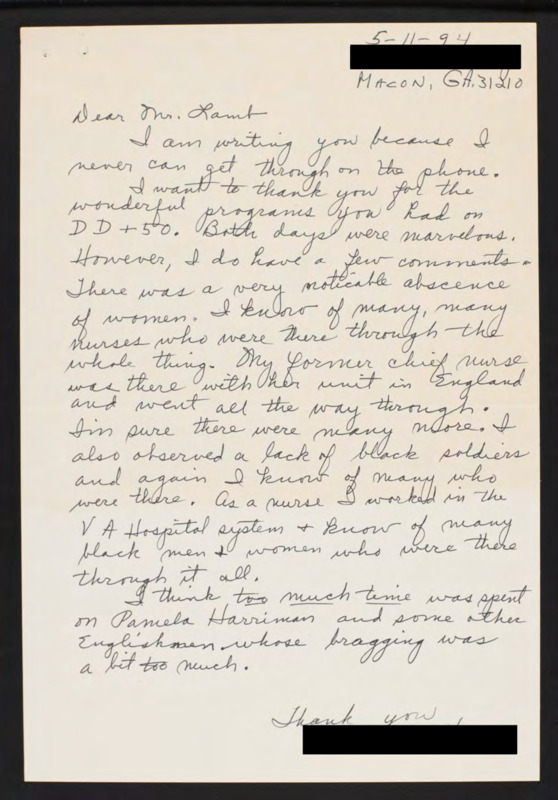 5-11-94
MACON, GA. 31210
Dear Mr. Lamb
I am writing you because I
never can get through on the phone.
I want to thank you for the
wonderful programs you had on
DD+50. Both days were marvelous.
However, I do have a few comments.
There was a very noticable abscence
of women. I know of many, many
nurses who were there through the
whole thing. My former chief nurse
was there with her unit in England
and went all the way through.
I'm sure there were many more. I
also observed a lack of black soldiers
and again I know of many who
were there. As a nurse I worked in the
V A Hospital system + know of many
black men & women who were there
through it all.
I think too much time was spent
on Pamela Harriman and some other
Englishmen whose bragging was
a bit too much.
Thank you,